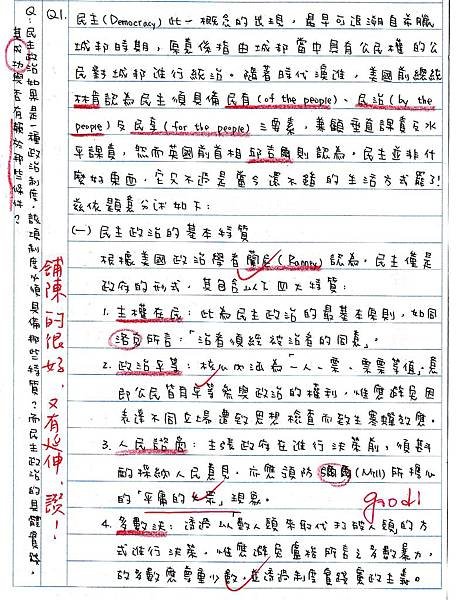 Q:民主政治如果是一種政治制度,該項制度必須具備那些特質?而民主政治的具體實踐,
其成功與否有賴於那些條件?
Q1.
民主(Democracy)此一概念的出現,最早可追溯自希臘
城邦時期,原意係指由城邦當中具有公民權的公
民對城邦進行統治。隨著時代演進,美國前總統
林肯認為民主須具備民有(of the people)、民治(by the
people)及民享(for the people)三要素,兼顧垂直課責及水
平課責,然而英國前首相邱吉爾則認為,民主並非什
麼好東西,它只不過是當今還不錯的生活方式罷了!
茲依題意分述如下:
(一)民主政治的基本特質
根據美國政治學者蘭尼(Ranney)認為,民主僅是
政府的形式,其包含以下四大特質:
1. 主權在民:此為民主政治的最基本原則,如同
洛克所言:「治者須經被治者的同意」。
2. 政治平等:核心內涵為「一人一票、票票等值」,意
即公民皆有平等參與政治的權利,惟應避免因
表達不同立場遭致思想檢查而致生寒蟬效應。
3. 人民諮商:主張政府在進行決策前,須甚
酌採納人民意見,亦應預防彌爾(Mill)所擔心
的「平庸的 」現象。
4. 多數決:透過以數人頭來取代打破人頭的方
式進行決策,惟應避免盧梭所言之多數暴力,
故多數應尊重少數,並透過制度實踐憲政主義。
鋪陳的很好,又有延伸,讚!
gaodi